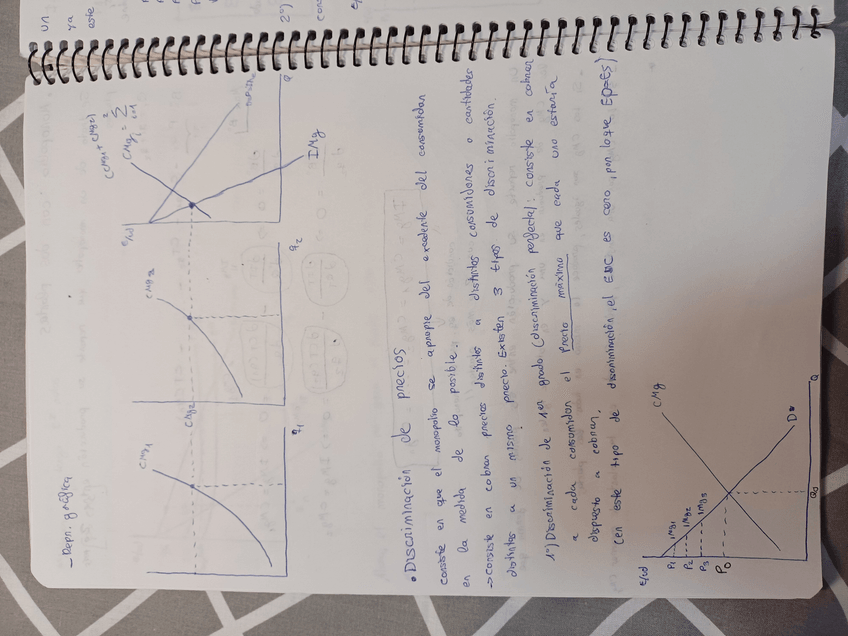 - Depn. gráfica
€/ud
CMg1
q1
CMg2
CMg2
q2
€/ud
(CMg1 + CMg2)
CMg = Σ
IMg
Q
• Discriminación de precios
consiste en que el monopolio se apropie del excedente del consumidor
en la medida de lo posible.
→ consiste en cobrar precios distintos a distintos consumidores o cantidades
distintos a un mismo precio. Existen 3 tipos de discriminación.
1º) Discriminación de 1er grado (discriminación perfecta): consiste en cobrar
a cada consumidor el precio máximo que cada uno estaría
dispuesto a cobrar.
(en este tipo de discriminación, el EDC es cero, por lo que EP=ES)
€/ud
P1
IMg1
P2
IMg2
P3
IMg3
P0
CMg
D
Q0
Q
un
ya
este
2º)